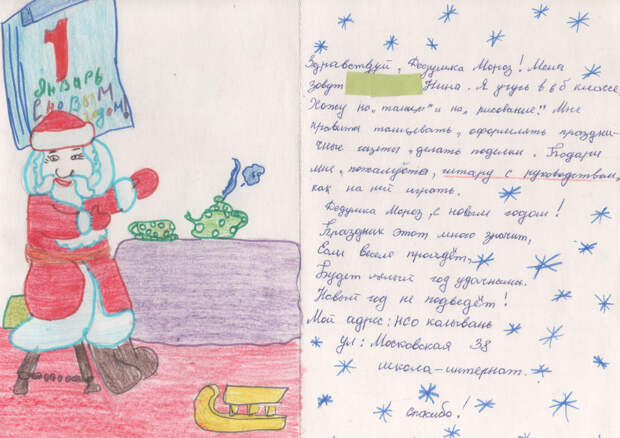 1
январь
С новым
годом!
Здравствуй, Дедушка Мороз! Меня
зовут Нина. Я учусь в 6 классе,
Хожу на "танцы" и на "рисование". Мне
нравиться танцевать, оформлять празднич-
ные газеты, делать поделки. Подари
мне, пожалуйста, гитару с руководством,
как на ней играть.
Дедушка Мороз, с новым годом!
Праздник этот много значит,
Если весело пройдёт,
Будет целый год удачным.
Новый год не подведёт!
Мой адрес: НСО колывань
ул: Московская 38
школа-интернат.
Спасибо!